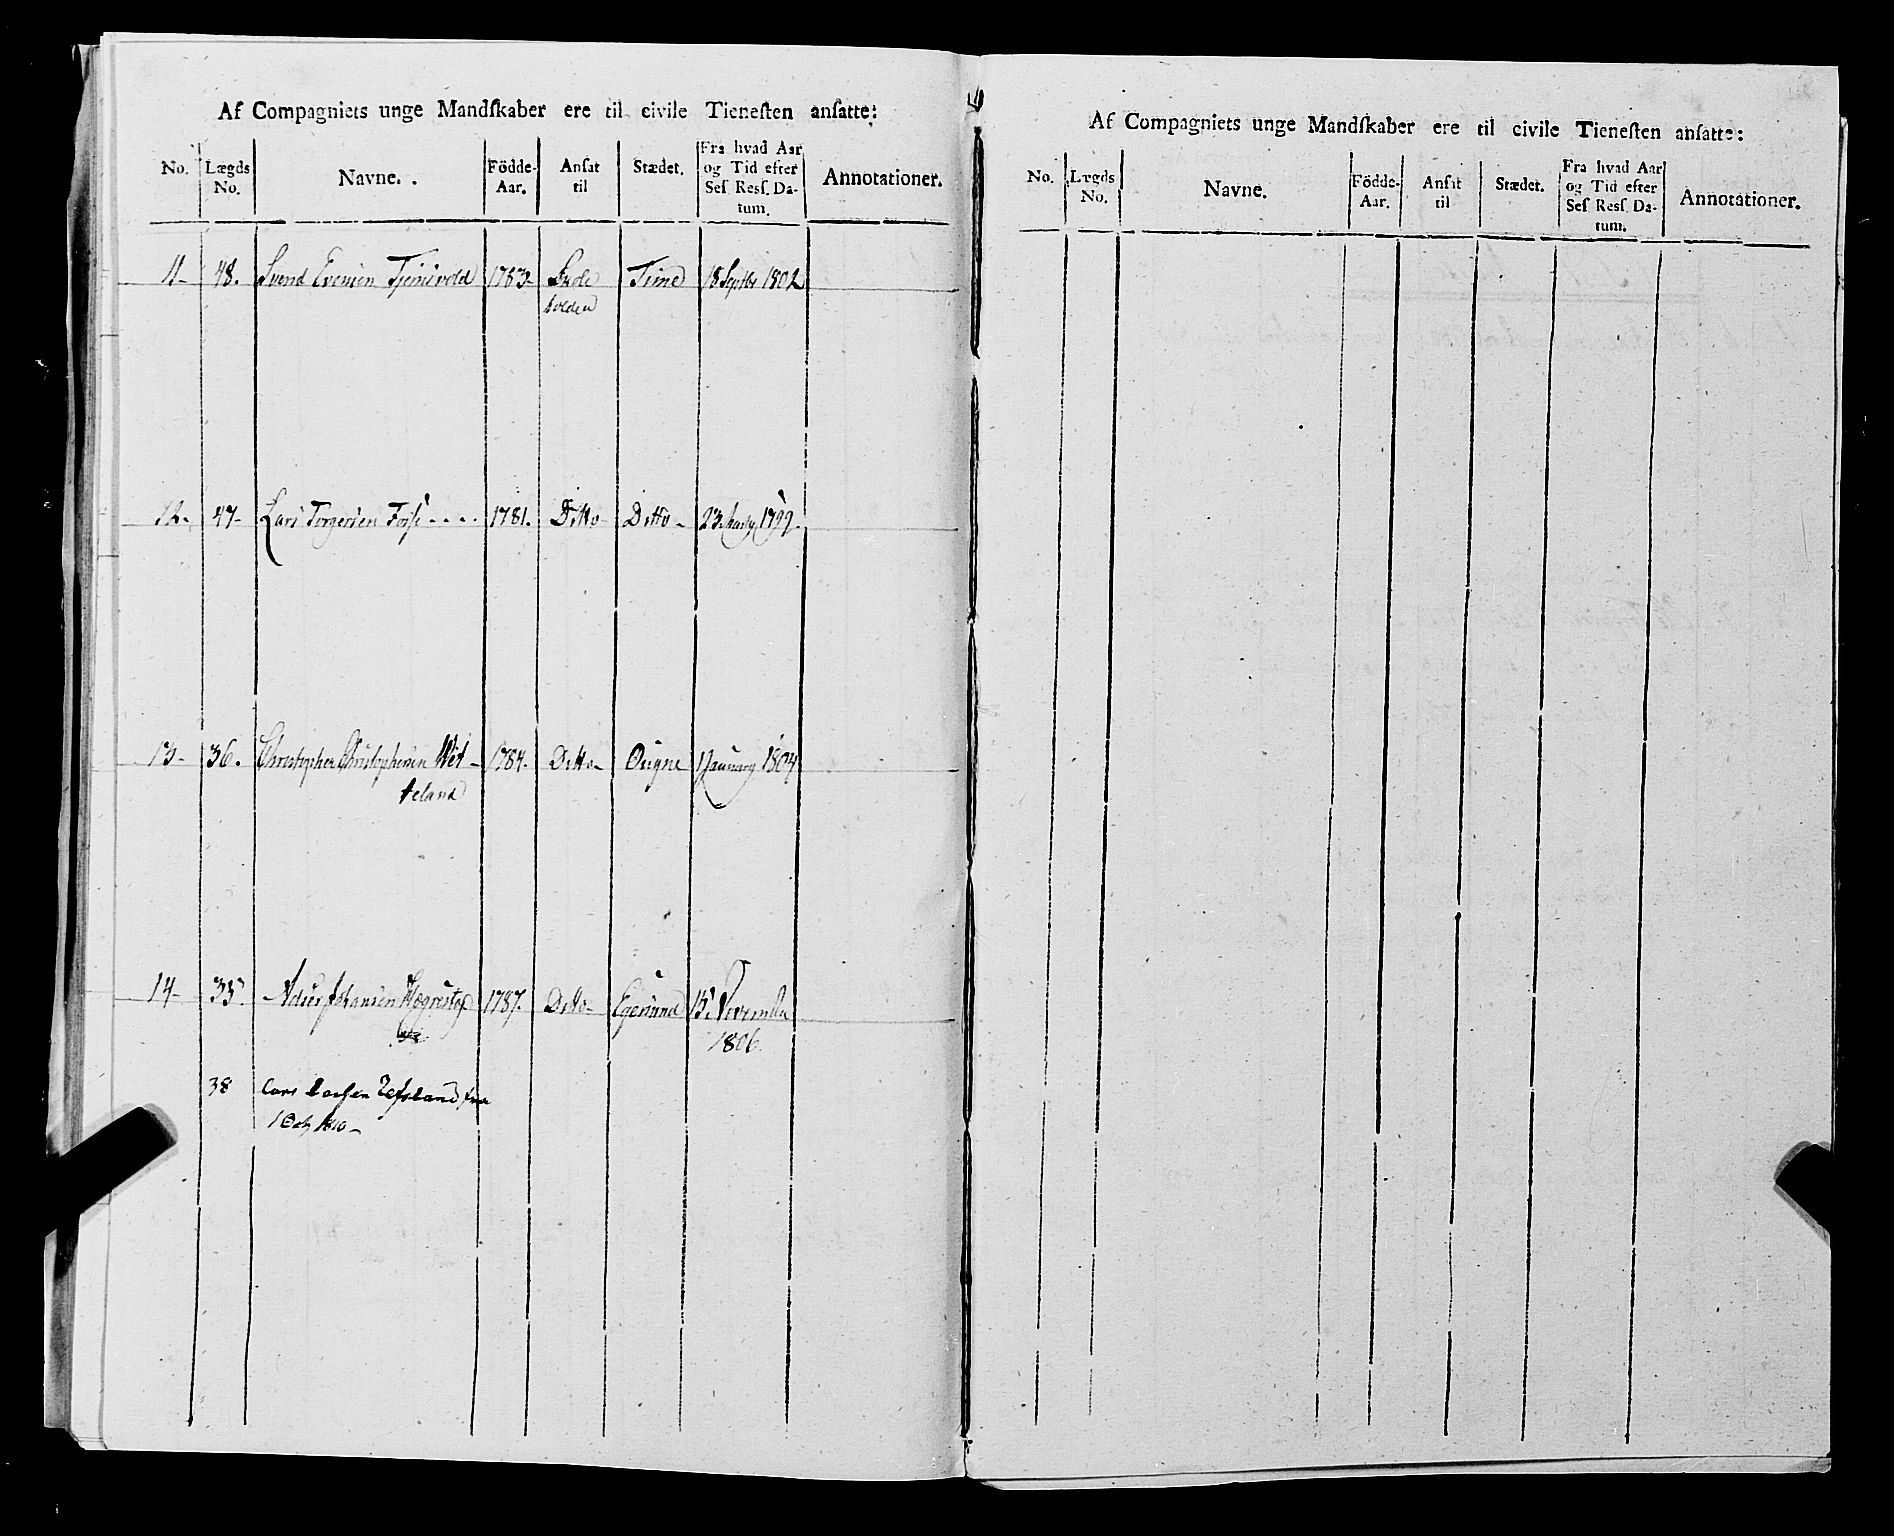 Af Compagniets unge Mandſkaber ere til civile Tieneſten anſatte:
No. Lægds No. Navne. Födde-Aar. Anſat til Stædet. Fra hvad Aar og Tid efter Seſ Reſſ. Da-tum. Annotationer.
11- 48. Svend Evensen 1783- Time 18 Septbr 1802
holden
12- 47- Lars Torgersen 1781. Ditto Ditto- 23 1799.
13- 36. Christopher Christophersen Wet- 1784- Ditto- Ougne January 1804
teland
14- 35. Johansen 1787. Ditto- Egersund 15 November
1806.
38 Lars
1 Oct 1810-
Af Compagniets unge Mandſkaber ere til civile Tieneſten anſatte:
No. Lægds No. Navne. Födde-Aar. Anſat til Stædet. Fra hvad Aar og Tid efter Seſ Reſſ. Da-tum. Annotationer.